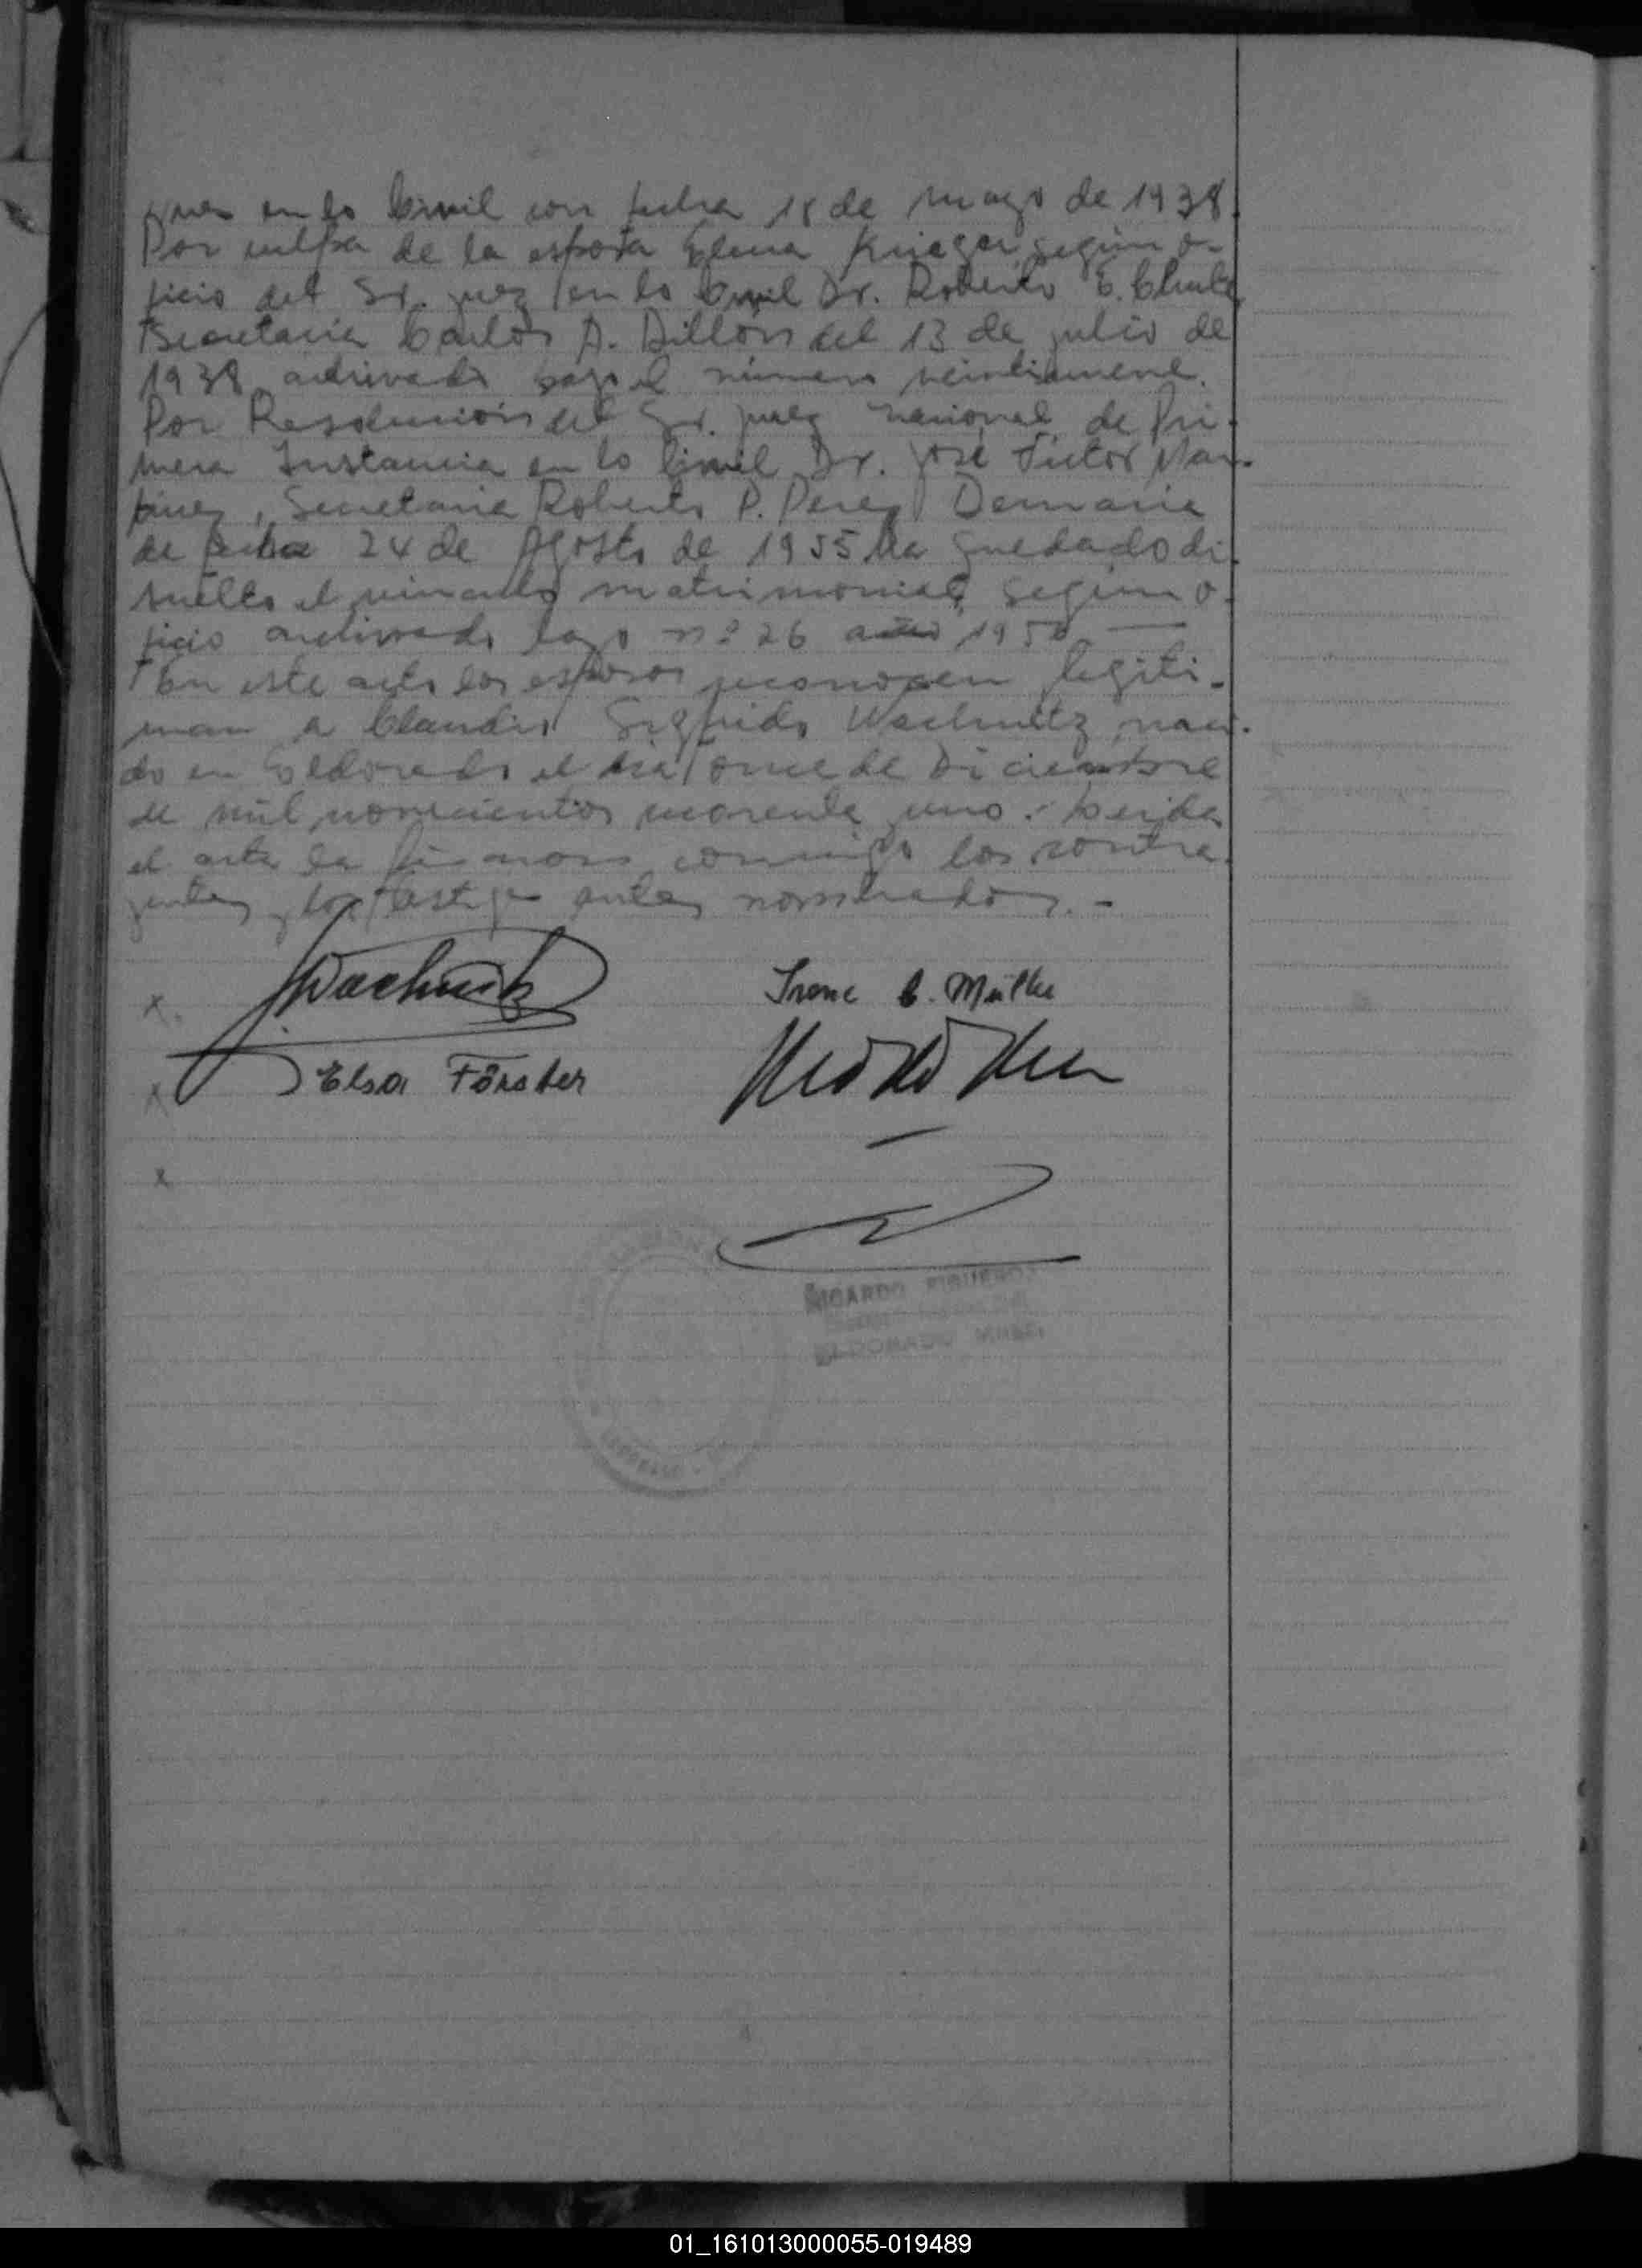 juez en lo Civil con fecha 18 de mayo de 1938.
Por culpa de la esposa Elena Krieger según o-
ficio del Sr. juez en lo Civil Dr. Roberto E. Chute
Secretaria Carlos A. Dillon del 13 de julio de
1938 archivado bajo el número veintinueve.
Por Resolución del Sr. juez nacional de Pri-
mera Instancia en lo Civil Dr. José Victor Mar-
tinez, Secretaria Roberto P. Perez Demaria
de fecha 24 de Agosto de 1955 ha quedado di-
suelto el vinculo matrimonial, según o-
ficio archivado bajo nº 26 año 1956 —
En este acto los esposos reconocen legiti-
man a Claudio Sigfrido Wachnitz naci-
do en Eldorado el dia once de Diciembre
de mil novecientos cuarenta uno. Leida
el acta la firmaron conmigo los contra-
yentes y los testigos antes nombrados. -
x. Wachnitz Irene C. Müller
x Elsa Förster
x
RICARDO FIGUEROA
ELDORADO MNES.
01_161013000055-019489